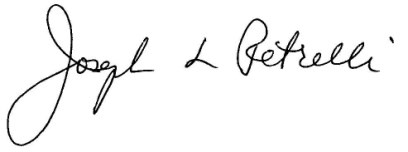 Joseph L Petrelli